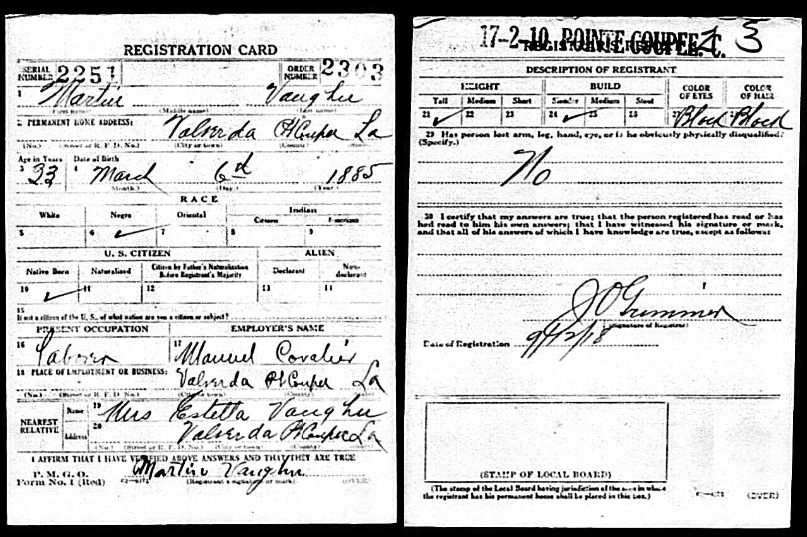 REGISTRATION CARD
SERIAL NUMBER 2251 ORDER NUMBER 2303
1 Martin Vaughn
(First name) (Middle name) (Last name)
2 PERMANENT HOME ADDRESS:
Valverda Pt Coupee La
(No.) (Street or R. F. D. No.) (City or town) (County) (State)
Age in Years Date of Birth
3 33 4 March 6th 1885
(Month.) (Day.) (Year.)
RACE
White Negro Oriental Indian
Citizen Noncitizen
5 6 ✓ 7 8 9
U. S. CITIZEN ALIEN
Native Born Naturalized Citizen by Father's Naturalization Before Registrant's Majority Declarant Non-declarant
10 ✓ 11 12 13 14
15
If not a citizen of the U. S., of what nation are you a citizen or subject?
PRESENT OCCUPATION EMPLOYER'S NAME
16 Laborer 17 Manuel Covalier
18 PLACE OF EMPLOYMENT OR BUSINESS:
Valverda Pt Coupee La
(No.) (Street or R. F. D. No.) (City or town) (County) (State)
NEAREST RELATIVE
Name 19 Mrs Estella Vaughn
Address 20 Valverda Pt Coupee La
(No.) (Street or R. F. D. No.) (City or town) (County) (State)
I AFFIRM THAT I HAVE VERIFIED ABOVE ANSWERS AND THAT THEY ARE TRUE
Martin Vaughn
P. M. G. O.
Form No. 1 (Red) (Registrant's signature or mark) (OVER)
17-2-10. POINTE COUPEE
REGISTRAR'S REPORT
DESCRIPTION OF REGISTRANT
HEIGHT BUILD COLOR OF EYES COLOR OF HAIR
Tall Medium Short Slender Medium Stout
21 ✓ 22 23 24 ✓ 25 26 27 Black Black
29 Has person lost arm, leg, hand, eye, or is he obviously physically disqualified?
(Specify.)
No
30 I certify that my answers are true; that the person registered has read or has
had read to him his own answers; that I have witnessed his signature or mark,
and that all of his answers of which I have knowledge are true, except as follows:
(Signature of Registrar)
Date of Registration 9/12/18
(STAMP OF LOCAL BOARD)
(The stamp of the Local Board having jurisdiction of the area in which
the registrant has his permanent home shall be placed in this box.)
(OVER)